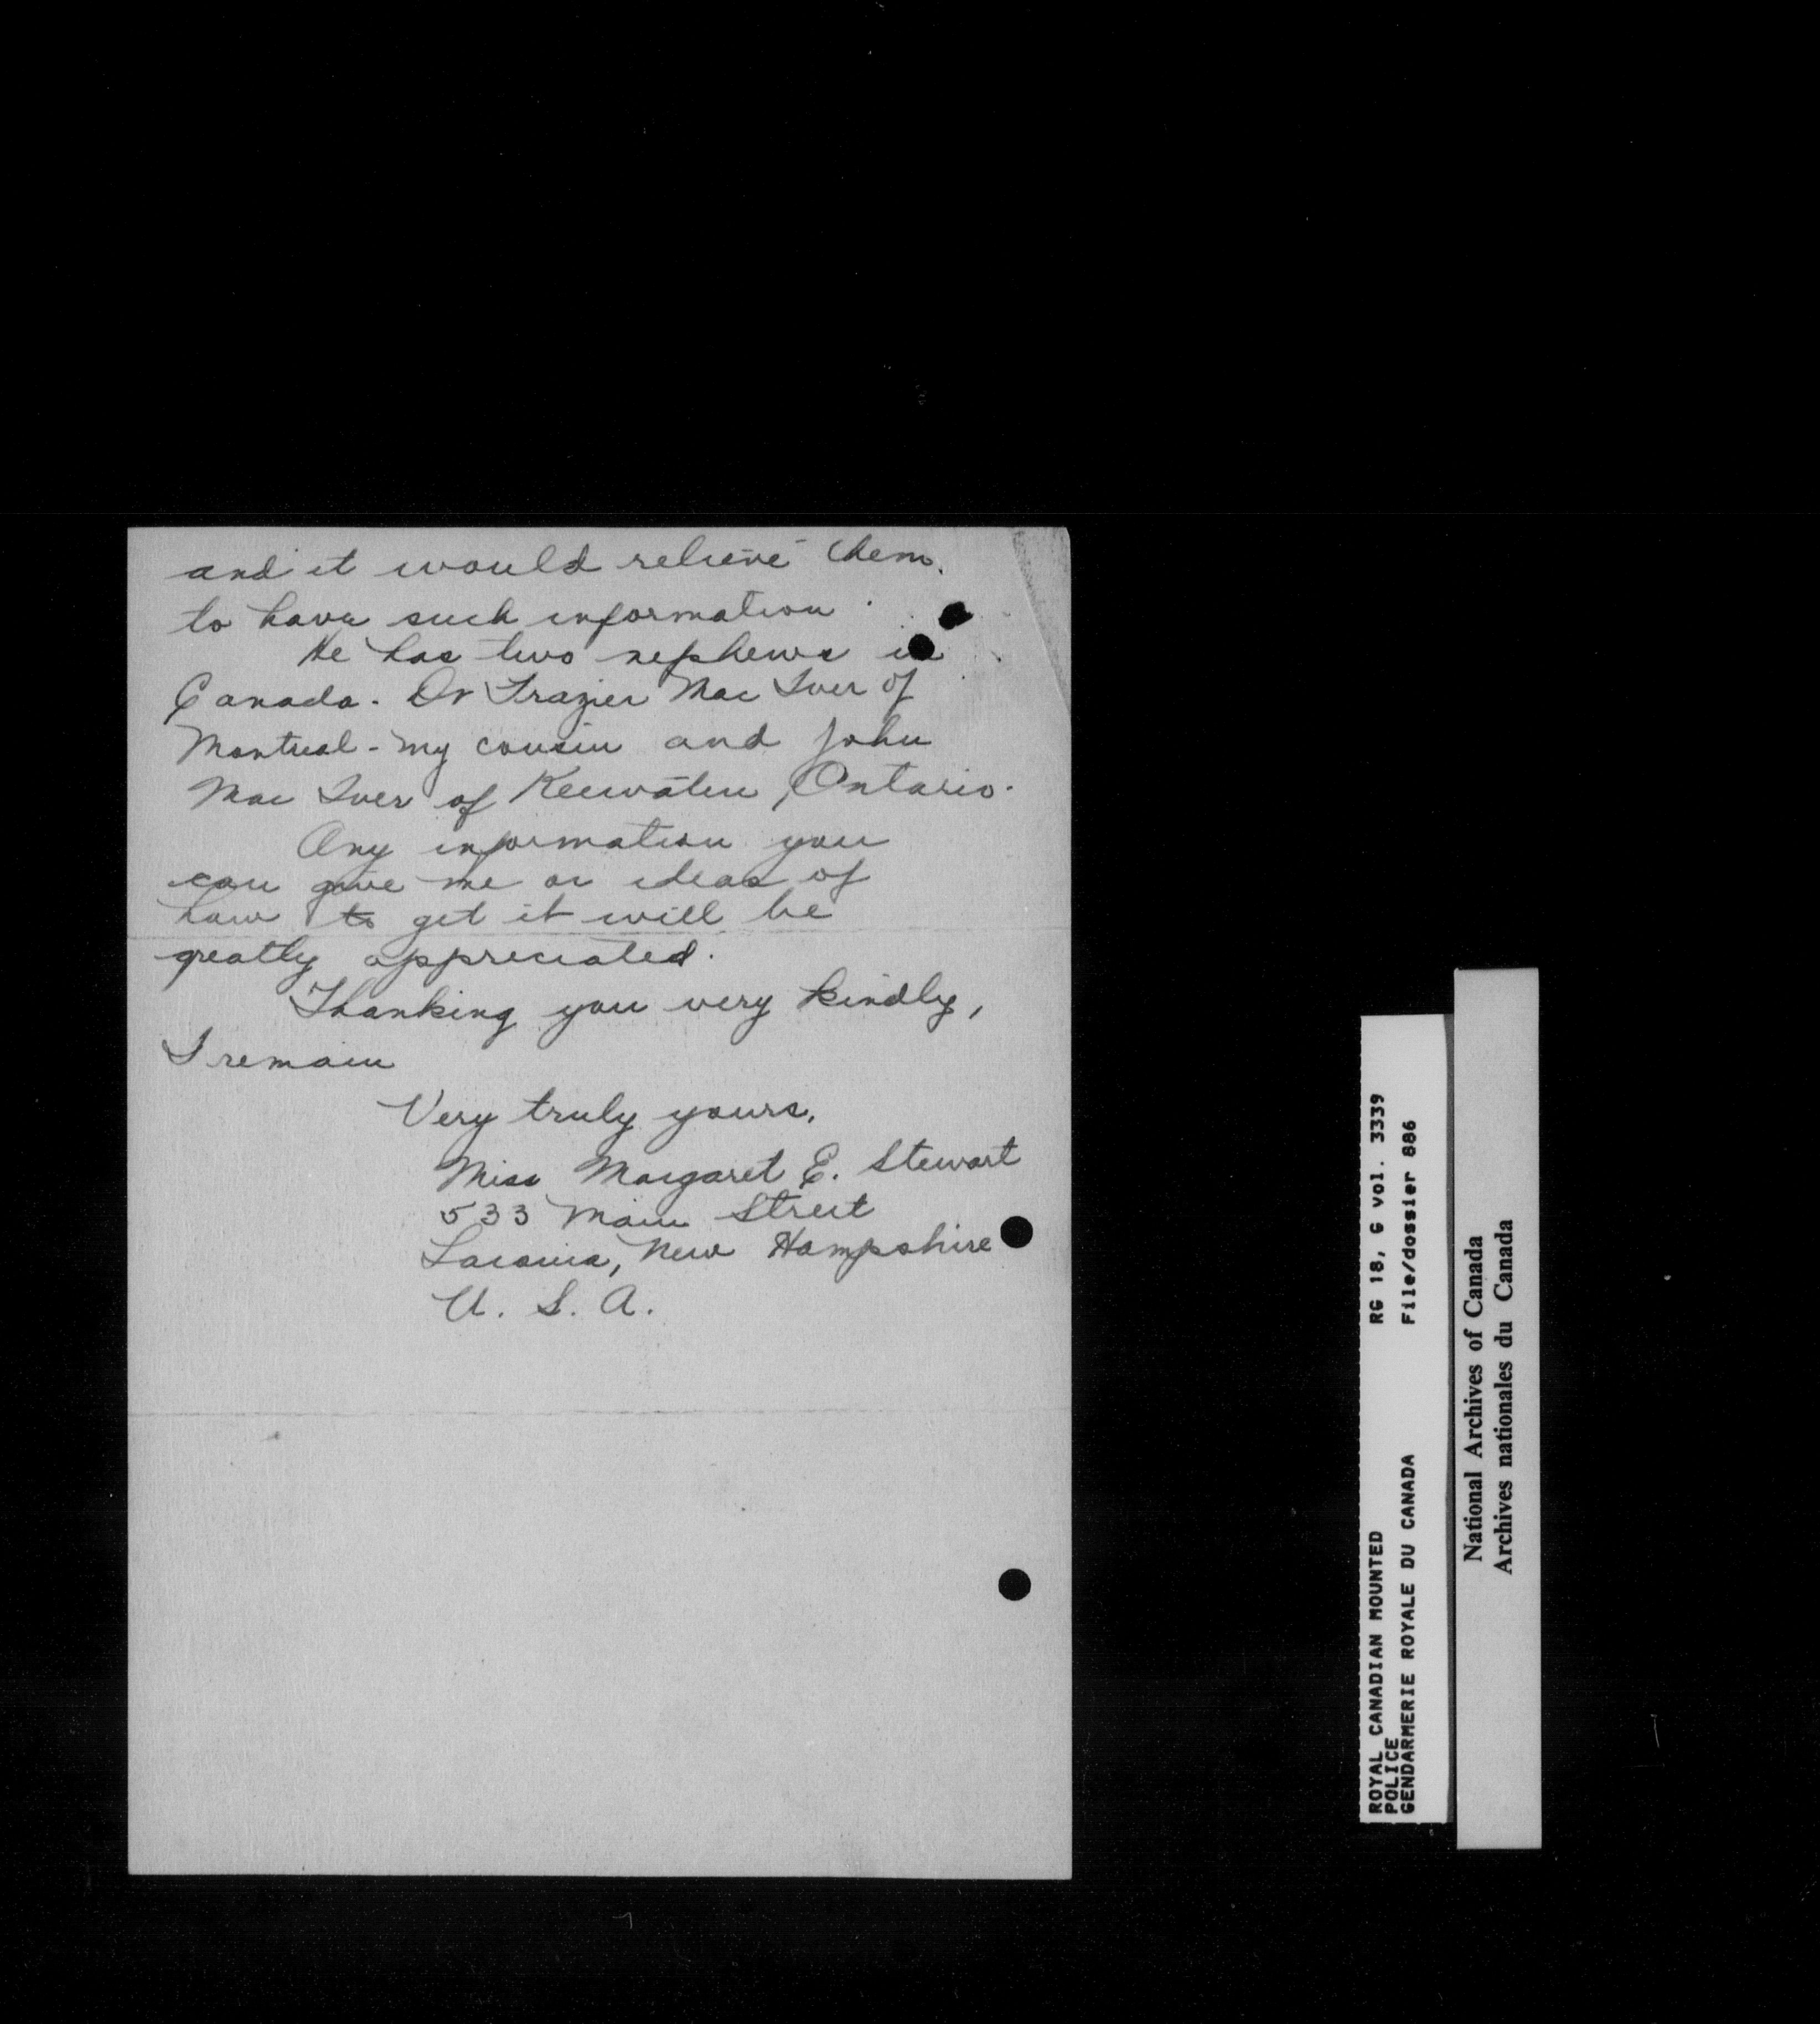 and it would relieve them.
to have such information.
He has two nephews in
Canada. Dr Frazier Mac Iver of
Montreal - my cousin and John
Mac Iver of Keewatin, Ontario.
Any information you
can give me or ideas of
how to get it will be
greatly appreciated.
Thanking you very kindly,
I remain
Very truly yours,
Miss Margaret E. Stewart
533 Main Street
Laconia, New Hampshire
U. S. A.
ROYAL CANADIAN MOUNTED RG 18, G vol. 3339
POLICE
GENDARMERIE ROYALE DU CANADA File/dossier 886
National Archives of Canada
Archives nationales du Canada